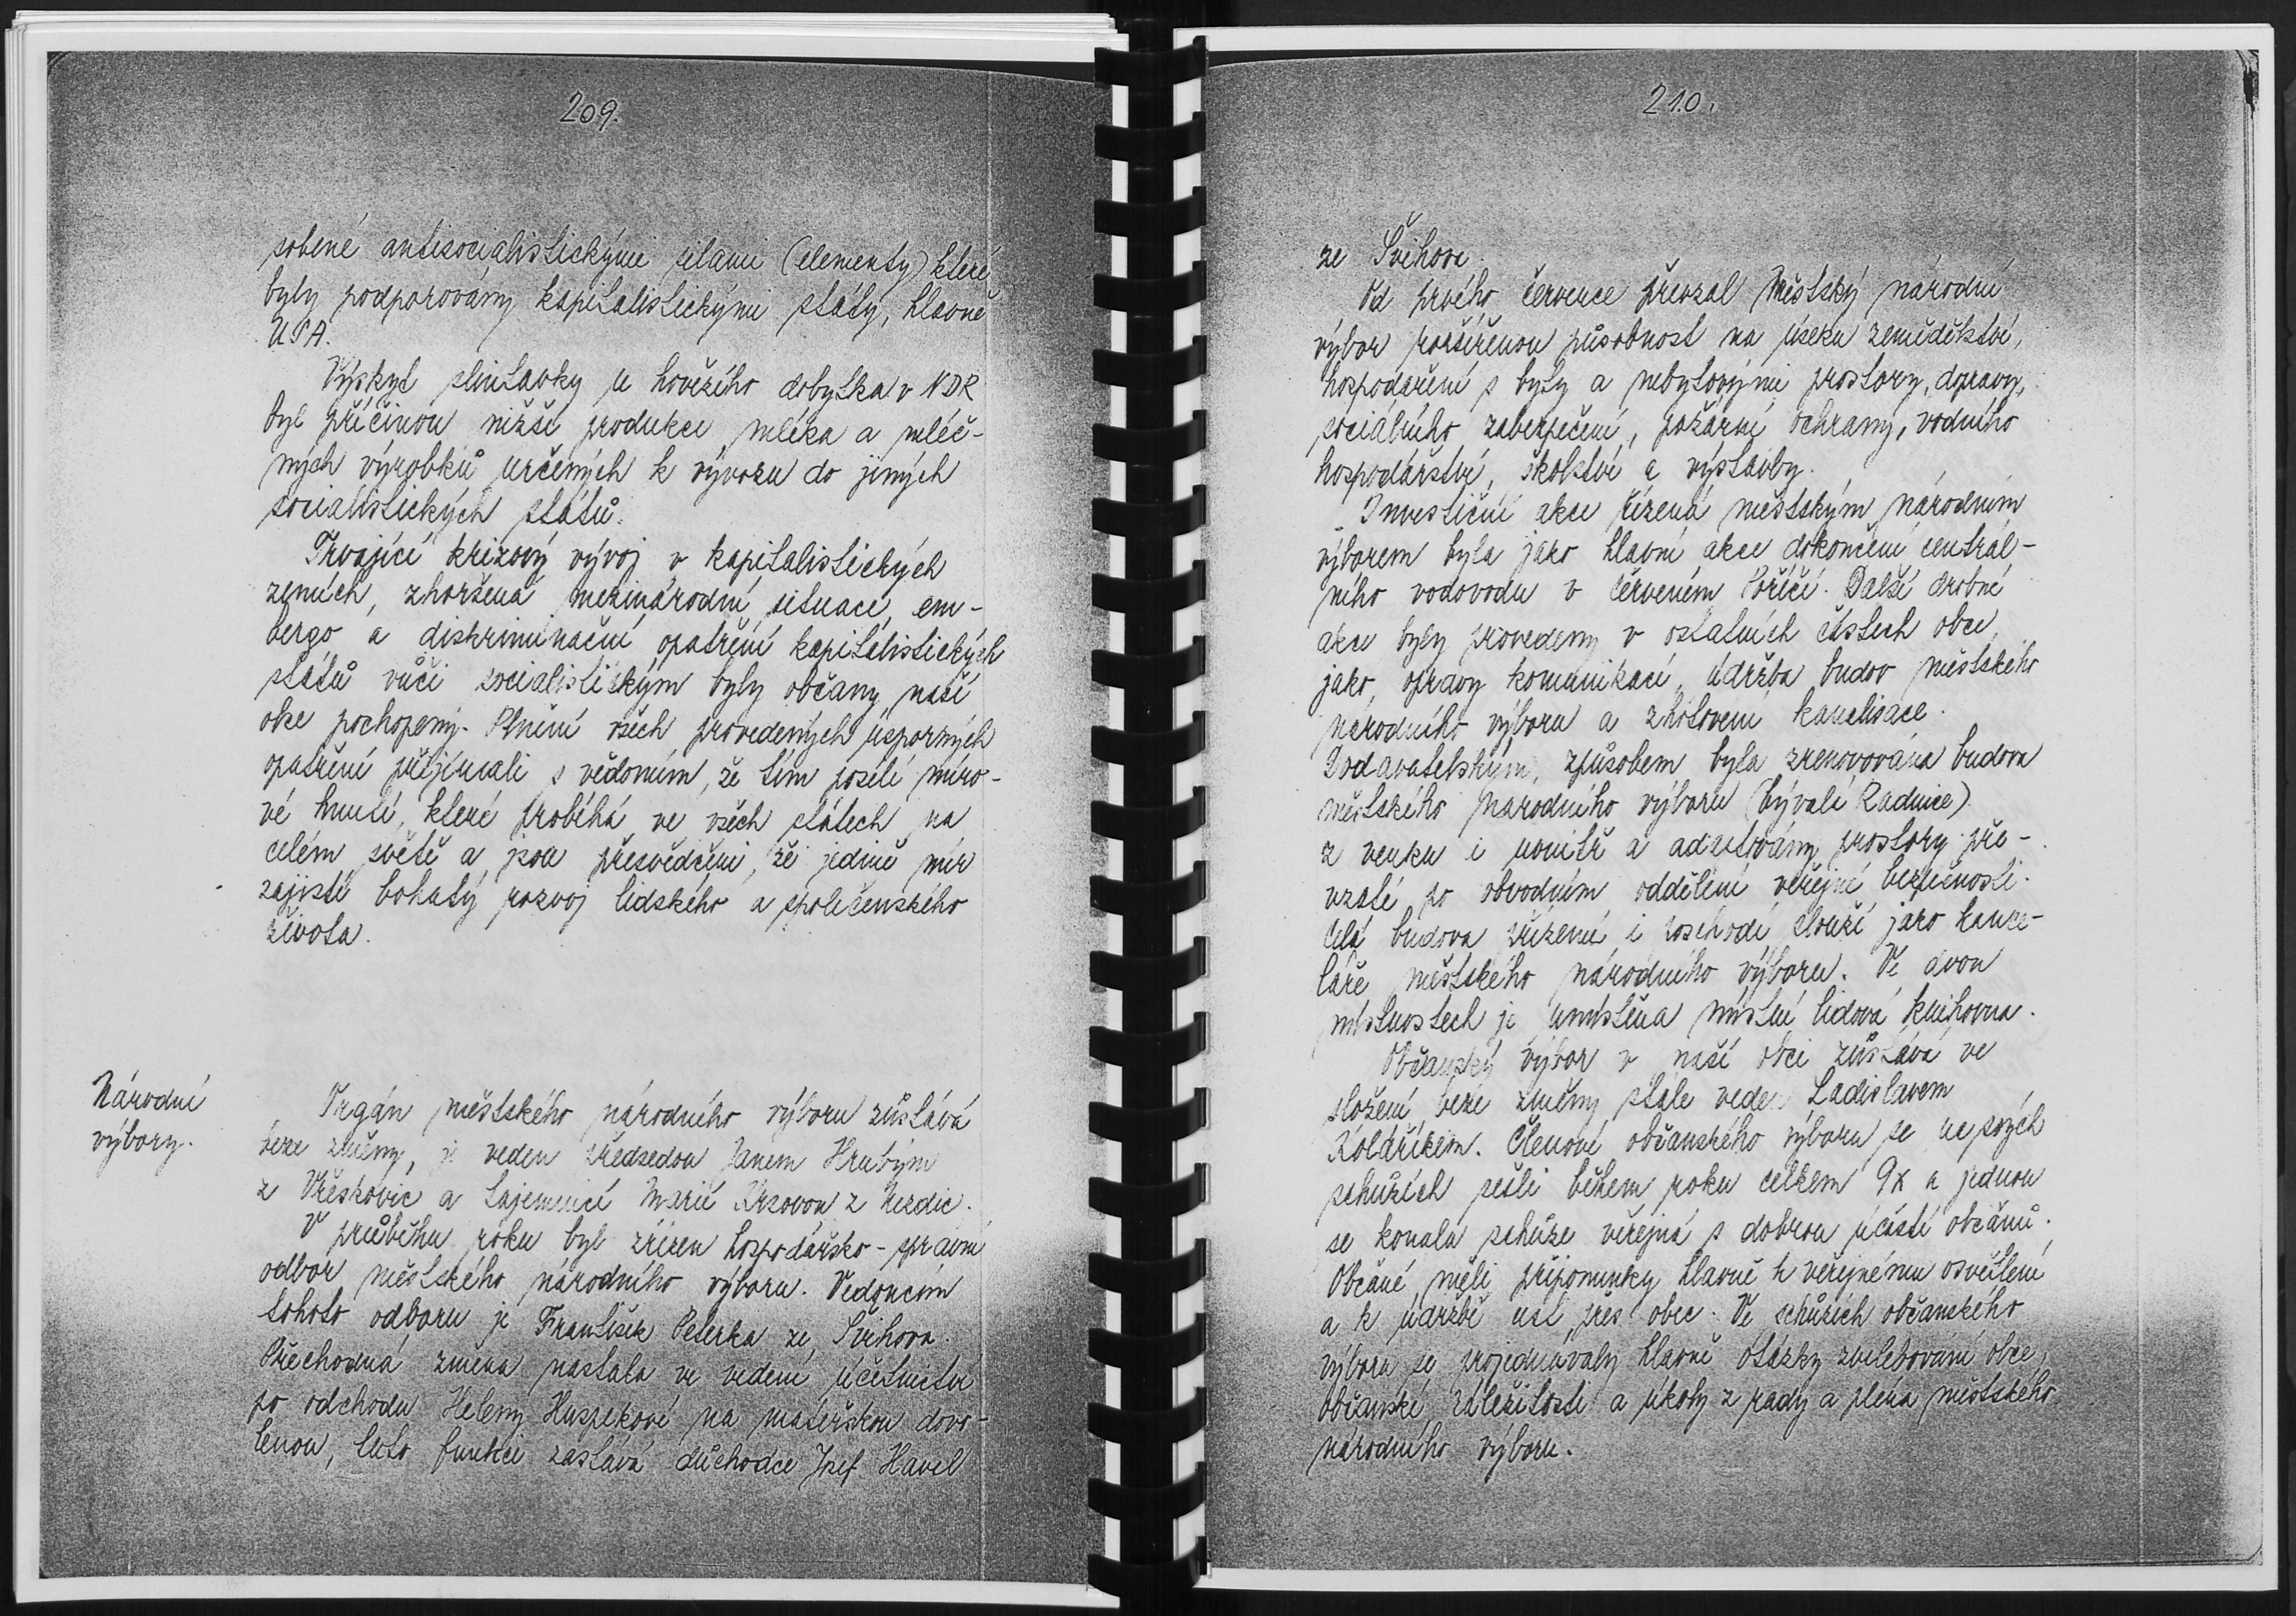 209.
sobené antisocialistickými silami (elementy) které
byly podporovány kapitalistickými státy, hlavně
USA.
Výskyt slintavky u hovězího dobytka v NDR
byl příčinou nižší produkce mléka a mléč-
ných výrobků určených k vývozu do jiných
socialistických států.
Trvající krizový vývoj v kapitalistických
zemích, zhoršená mezinárodní situace, em-
bergo a diskriminační opatření kapitalistických
států vůči socialistickým byly občany naší
obce pochopeny. Plnění všech provedených úsporných
opatření přijímali s vědomím, že tím posílí míro-
vé hnutí, které probíhá ve všech státech na
celém světě a jsou přesvědčeni, že jedině mír
zajistí bohatý rozvoj lidského a společenského
života.
Národní
výbory.
Orgán městského národního výboru zůstává
beze změny, je veden předsedou Janem Hrubým
z Vřeskovic a tajemnicí Marií Krsovou z Nezdic.
V průběhu roku byl zřízen hospodářsko-správní
odbor městského národního výboru. Vedoucím
tohoto odboru je František Peterka ze Švihova.
Přechodná změna nastala ve vedení účetnictví
po odchodu Heleny Huspekové na mateřskou dovo-
lenou, tuto funkci zastává důchodce Josef Havel
210.
ze Švihova.
Od prvého července převzal Městský národní
výbor rozšířenou působnost na úseku zemědělství,
hospodaření s byty a nebytovými prostory, dopravy,
sociálního zabezpečení, požární ochrany, vodního
hospodářství, školství a výstavby.
Investiční akce řízená městským národním
výborem byla jako hlavní akce dokončení centrál-
ního vodovodu v Červeném Poříčí. Další drobné
akce byly provedeny v ostatních částech obce,
jako opravy komunikací, údržba budov městského
národního výboru a zhotovení kanalisace.
Dodavatelským způsobem byla zrenovována budova
městského národního výboru (bývalá Radnice)
z venku i uvnitř a adaptovány prostory pře-
vzaté po obvodním oddělení veřejné bezpečnosti.
Celá budova přízemí i poschodí slouží jako kance-
láře městského národního výboru. Ve dvou
místnostech je umístěna místní lidová knihovna.
Občanský výbor v naší obci zůstává ve
složení beze změny stále veden Ladislavem
Koláříkem. Členové občanského výboru se ve svých
schůzích sešli během roku celkem 9x a jednou
se konala schůze veřejná s dobrou účastí občanů.
Občané měli připomínky hlavně k veřejnému osvětlení
a k údržbě cest přes obec. Ve schůzích občanského
výboru se projednávaly hlavně otázky zvelebování obce,
občanské záležitosti a úkoly z rady a pléna městského
národního výboru.